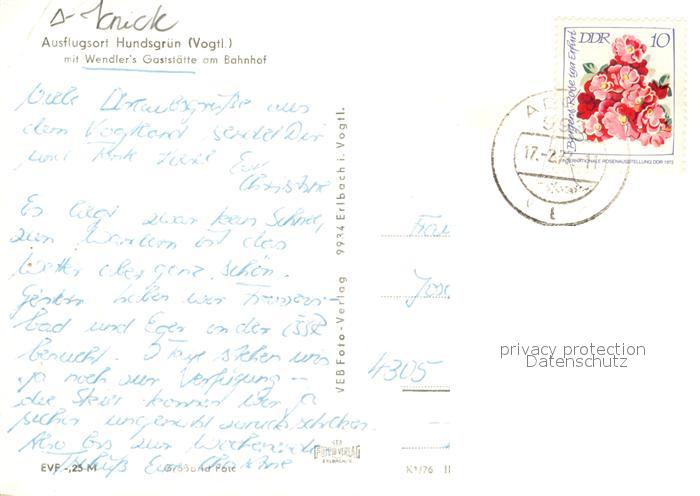 Ausflugsort Hundsgrün (Vogtl.)
mit Wendler's Gaststätte am Bahnhof
Viele Urlaubsgrüße aus
dem Vogtland sendet Dir
und
Christine
Es liegt zwar kein Schnee,
zum Wandern ist das
Wetter aber ganz schön.
Gestern haben wir Franzens-
bad und Eger in der ČSSR
besucht. 5 Tage stehen uns
ja noch zur Verfügung –
die Ski können wir ja
sicher ungenutzt zurückschicken.
Also bis zum Wochenende
Tschüß Eure Christine
EVP -,25 M
Großbild Foto
VEB Foto-Verlag 9934 Erlbach i. Vogtl.
DDR 10
Berger's Rose iga Erfurt
INTERNATIONALE ROSENAUSSTELLUNG DDR 1972
17.-2.
Frau
4305
privacy protection
Datenschutz
FOTO-VERLAG
ERLBACH
K1/76